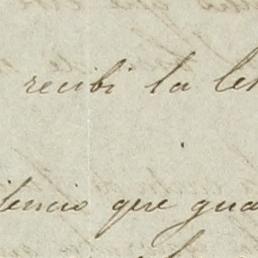 recibi la le
lencio que gua